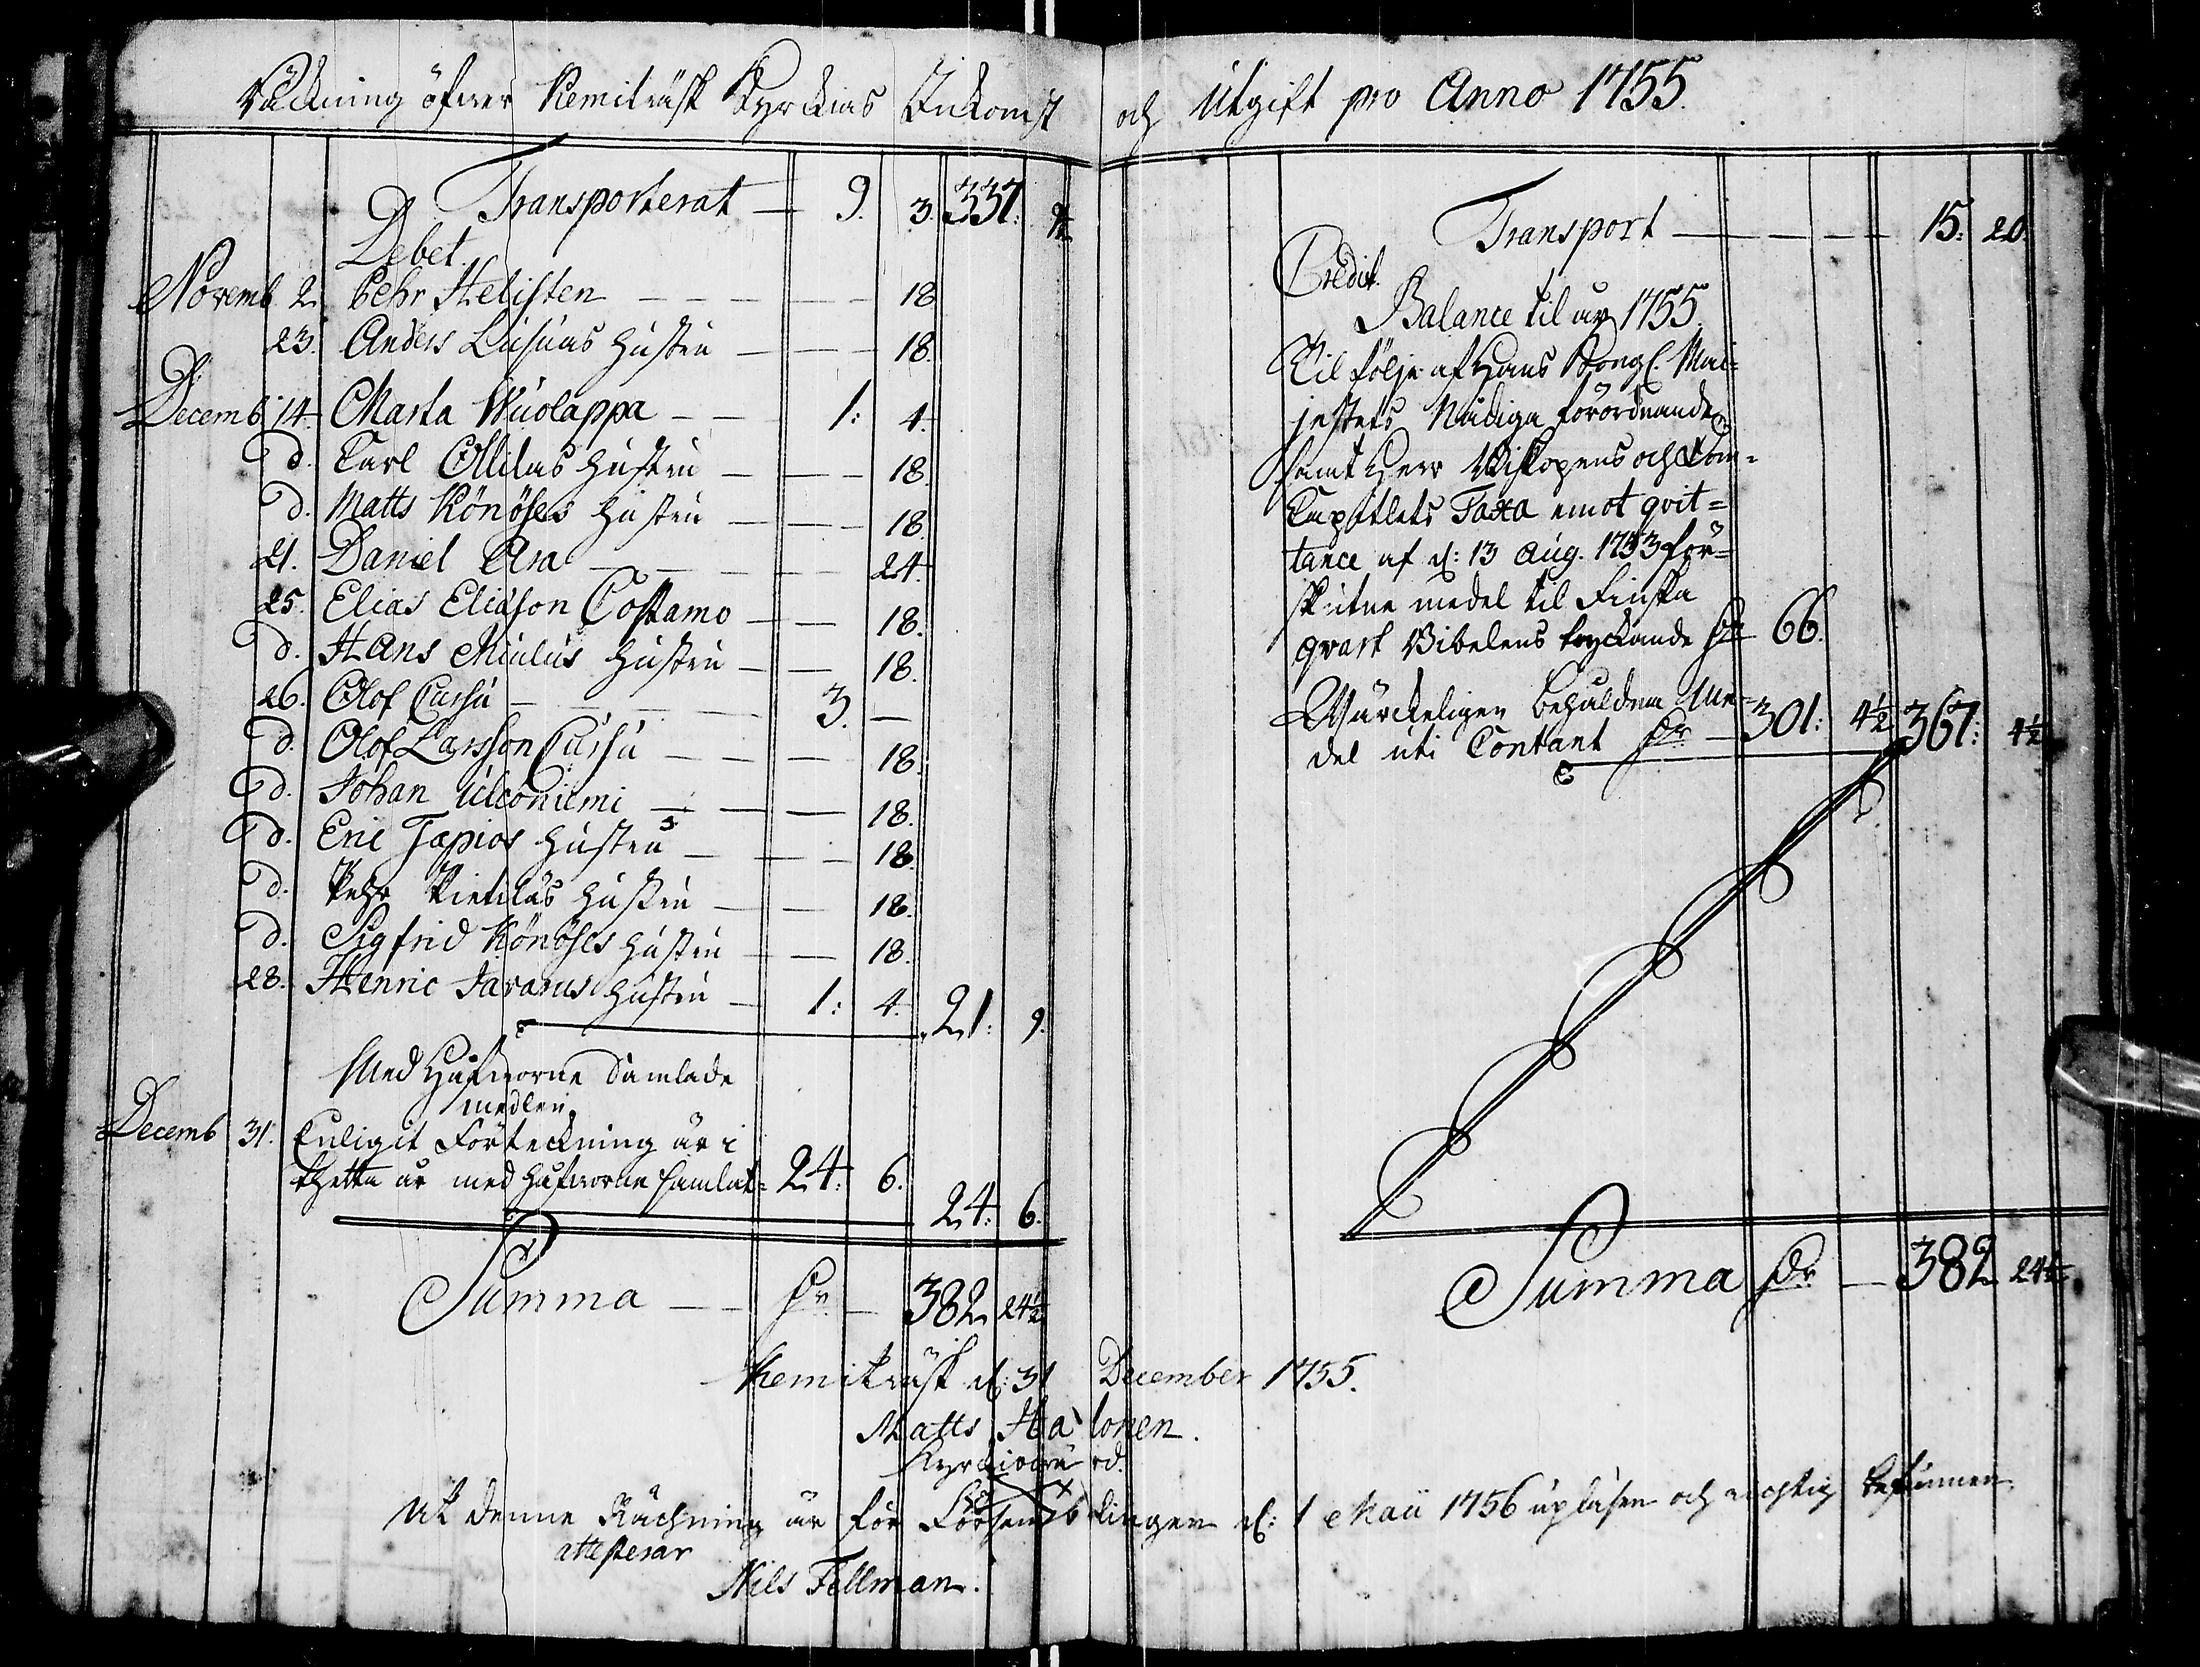 Räckning öfwer Kemiträsk Kyrckias Inkomst och Utgift pro Anno 1755.
Transporterat — 9. 3. 337: 9½
Debet.
Novemb 2. Pehr Helisten — 18
23. Anders Lusuas hustru — 18.
Decemb 14. Marta Wuolappa — 1: 4.
d. Carl Ollilas hustru — 18.
d. Matts Könöhes hustru — 18.
21. Daniel Ara — 24.
25. Elias Eliasson Costamo — 18.
d. Hans Mulus hustru — 18.
26. Olof Cursu — 3. —
d. Olof Larsson Cursu — 18.
d. Johan Ulconiemi — 18.
d. Eric Tapios hustru — 18.
d. Pehr Pietilas hustru — 18.
d. Sigfrid Könöhes hustru — 18.
28. Henric Javarus hustru — 1: 4. 21: 9.
Med Håfworne Samlade
medlen.
Decemb 31. Enligit Förteckning är i
thetta år med håfworne samlat= 24: 6. 24: 6.
Summa — Sr — 382 24½
Transport — 15: 20.
Credit.
Balance til år 1755.
Til följe af Hans Kongl. Mai=
jestets Nådiga förordnande
samt Herr Biskopens och Dom=
Capitlets Taxa emot qvit=
tance af d: 13 Aug. 1753 för=
skutne medel til Finska
qvart Bibelens tryckande Sr 66.
Wärckeligen behåldna Me=
del uti Contant Sr — 301: 4½ 367: 4½
Summa Sr — 382 24½
Kemiträsk d: 31 December 1755.
Matts Halonen.
Kyrckiowärd.
At denne Räckning är för Församblingen d: 1 Maii 1756 upläsen och richtig befunnen,
attesterar
Nils Fellman.